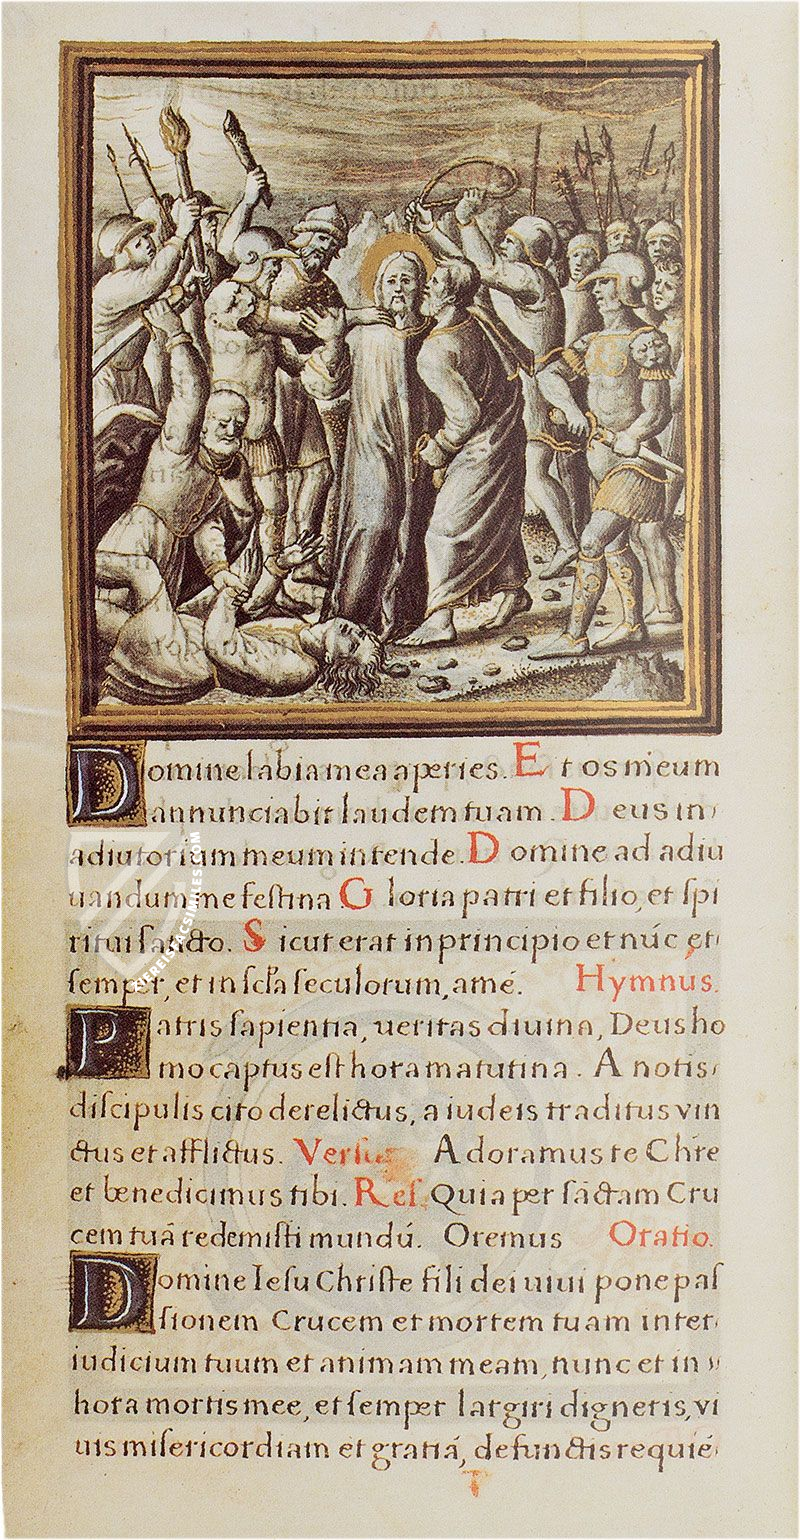 Domine labia mea aperies. Et os meum
annunciabit laudem tuam. Deus in
adiutorium meum intende. Domine ad adiu
uandum me festina Gloria patri et filio, et spi
ritui sancto. Sicut erat in principio et nūc et
semper, et in scl̄a seculorum, amē. Hymnus.
Patris sapientia, ueritas diuina, Deus ho
mo captus est hora matutina. A notis
discipulis cito derelictus, a iudeis traditus vin
ctus et afflictus. Versus Adoramus te Chr̄e
et benedicimus tibi. Res. Quia per sāctam Cru
cem tuā redemisti mundū. Oremus Oratio.
Domine Iesu Christe fili dei uiui pone pas
sionem Crucem et mortem tuam inter
iudicium tuum et animam meam, nunc et in
hora mortis mee, et semper largiri digneris, vi
uis misericordiam et gratiā, defunctis requiē
ZIEREIS FACSIMILES.COM